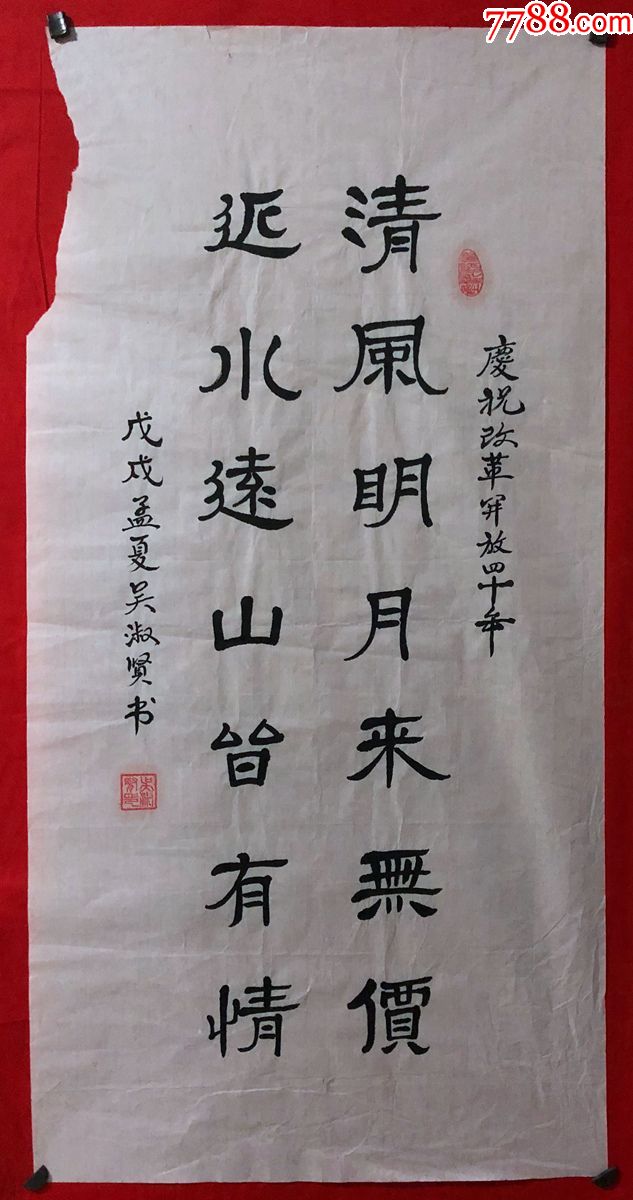 7788.com
慶祝改革開放四十年
清風明月来無價
近水遠山皆有情
戊戌孟夏吴淑贤书